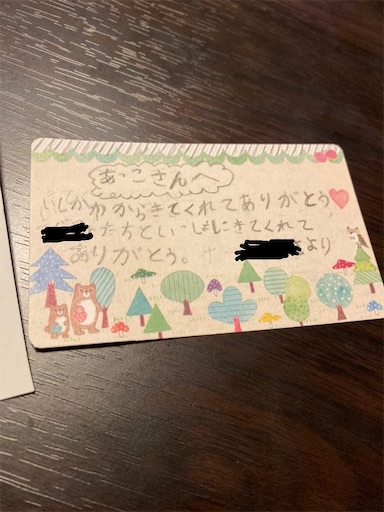 あっこさんへ
いしかわからきてくれてありがとう
たちといっしょにきてくれて
ありがとう。 より